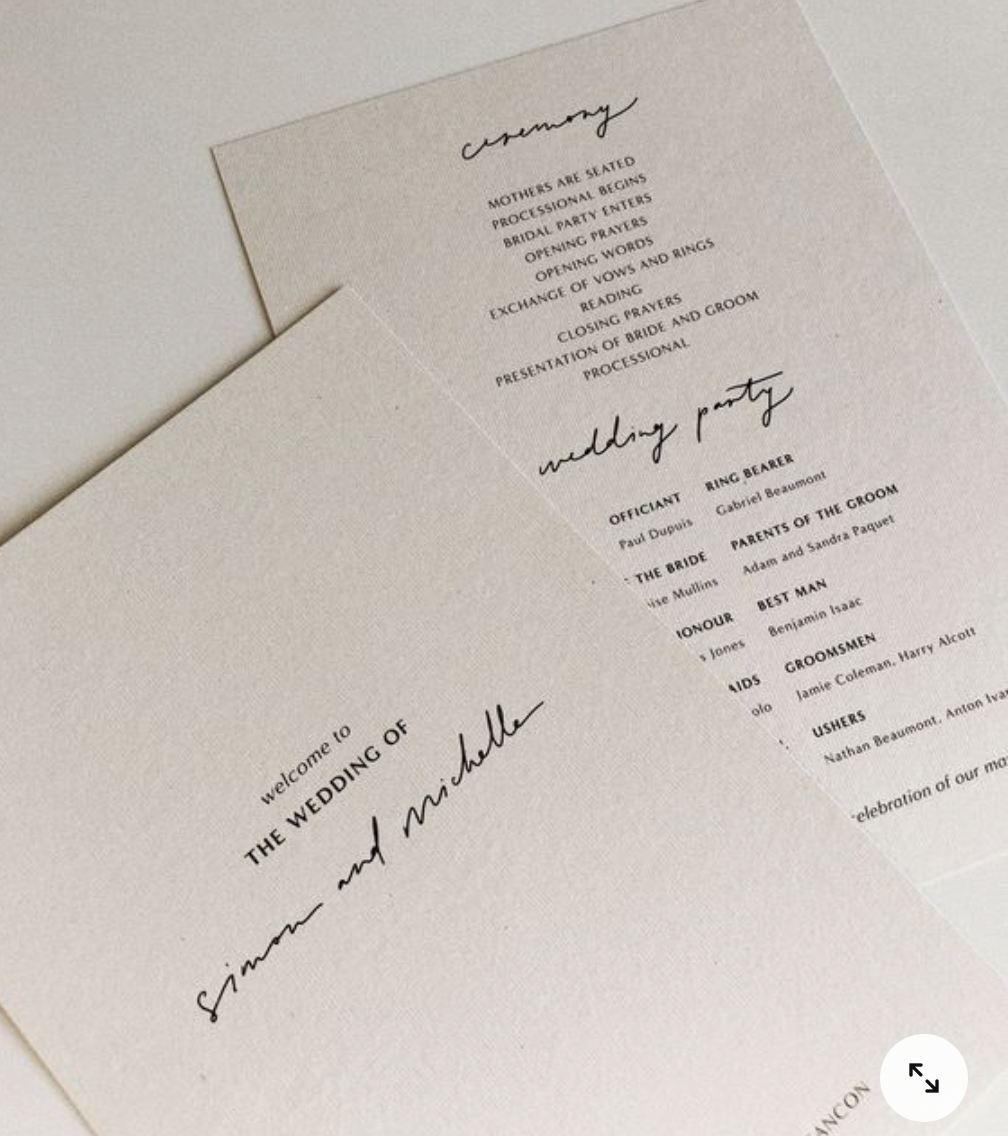 ceremony
MOTHERS ARE SEATED
PROCESSIONAL BEGINS
BRIDAL PARTY ENTERS
OPENING PRAYERS
OPENING WORDS
EXCHANGE OF VOWS AND RINGS
READING
CLOSING PRAYERS
PRESENTATION OF BRIDE AND GROOM
PROCESSIONAL
wedding party
OFFICIANT RING BEARER
Paul Dupuis Gabriel Beaumont
THE BRIDE PARENTS OF THE GROOM
Mullins Adam and Sandra Paquet
BEST MAN
Jones Benjamin Isaac
GROOMSMEN
Jamie Coleman, Harry Alcott
USHERS
Nathan Beaumont, Anton
of our
welcome to
THE WEDDING OF
simon and michelle